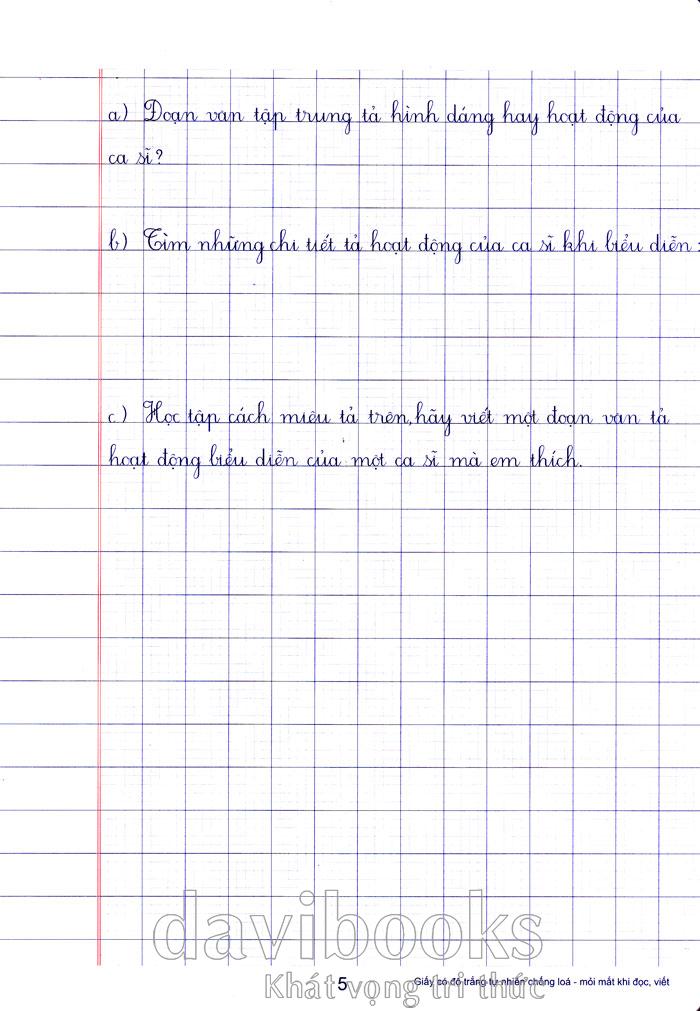 a) Đoạn văn tập trung tả hình dáng hay hoạt động của
ca sĩ?
b) Tìm những chi tiết tả hoạt động của ca sĩ khi biểu diễn:
c) Học tập cách miêu tả trên, hãy viết một đoạn văn tả
hoạt động biểu diễn của một ca sĩ mà em thích.
davibooks
Khát vọng tri thức
5
Giấy có độ trắng tự nhiên chống loá - mỏi mắt khi đọc, viết